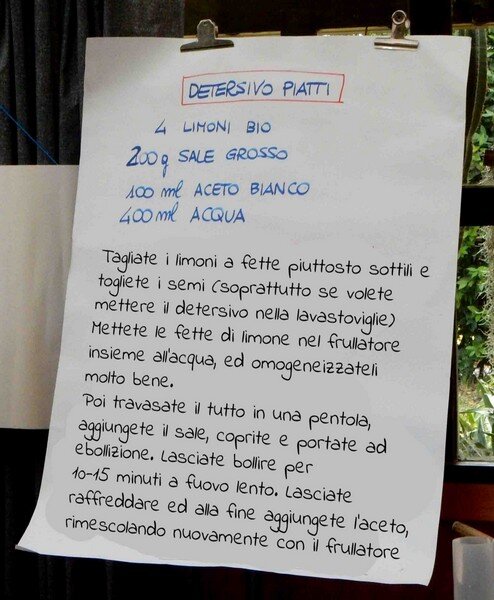 DETERSIVO PIATTI
4 LIMONI BIO
200g SALE GROSSO
100 ml ACETO BIANCO
400 ml ACQUA
Tagliate i limoni a fette piuttosto sottili e
togliete i semi (soprattutto se volete
mettere il detersivo nella lavastoviglie)
Mettete le fette di limone nel frullatore
insieme all'acqua, ed omogeneizzateli
molto bene.
Poi travasate il tutto in una pentola,
aggiungete il sale, coprite e portate ad
ebollizione. Lasciate bollire per
10-15 minuti a fuovo lento. Lasciate
raffreddare ed alla fine aggiungete l'aceto,
rimescolando nuovamente con il frullatore